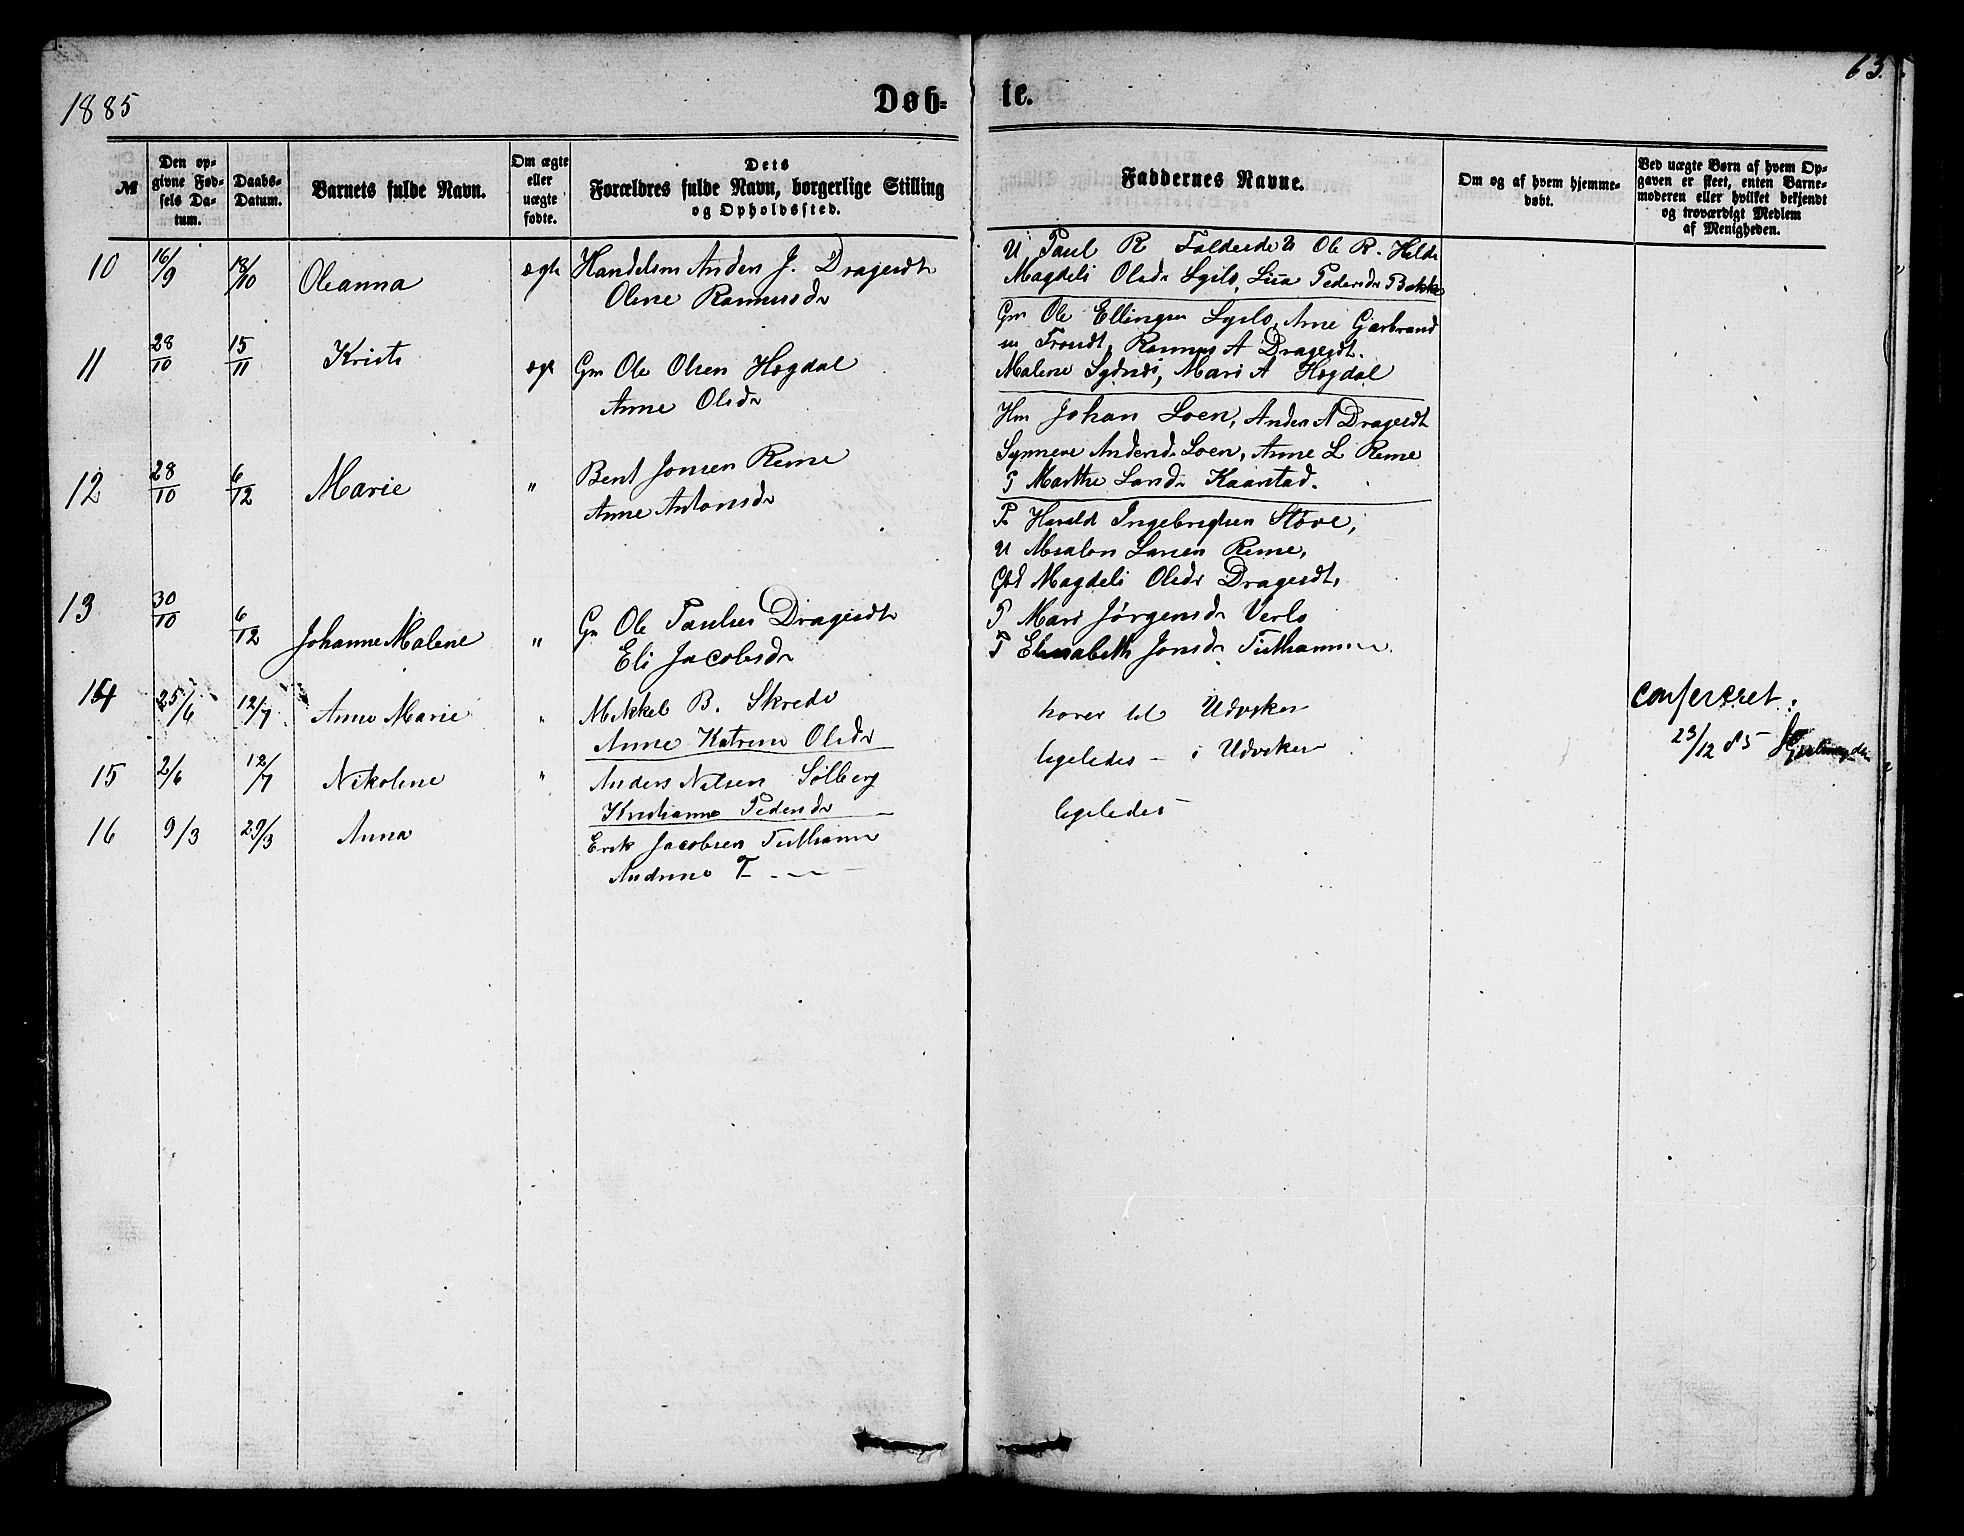 1885
Døb-
te.
63.
№
Den op-
givne Fød-
sels Da-
tum.
Daabs-
Datum.
Barnets fulde Navn.
Om ægte
eller
uægte
fødte.
Dets
Forældres fulde Navn, borgerlige Stilling
og Opholdssted.
Faddernes Navne.
Om og af hvem hjemme-
døbt.
Ved uægte Børn af hvem Op-
gaven er skeet, enten Barne-
moderen eller hvilket bekjendt
og troværdigt Medlem
af Menigheden.
10 16/9 18/10 Oleanna ægte Handelsm Anders J. Dragesdt
Oline Rasmusdr
U Paul R U Ole R. Helde
Magdeli Olsdr Pedersdr Bakke
11 28/10 15/11 Kristi ægt Gm Ole Olsen Hogdal
Anne Olsdr
Gm Ole Ellingsen Arne Garbrand
Rasmus A Dragesdt.
Malene Mari A Hogdal
12 28/10 6/12 Marie " Bent Jonsen Reme
Anne Antonsdr
Hm Johan Loen, Anders A Dragesdt
Synneve Andersd Loen, Anne L Reme
P Marthe Larsdr Kaarstad.
13 30/10 6/12 Johanne Malene " Gm Ole Paulsen Dragesdt
Eli Jacobsdr
P Harald Ingebrigtsen Støve,
U Absalon Larsen Reme,
Gbd Magdeli Olsdr Dragesdt,
P Mari Jørgensdr Verlo
P Elisabeth Jonsdr
14 25/6 12/7 Anne Marie " Mikkel B. Skrede
Anne Katrine Olsdr
hører til Udviker
confereret:
23/12 85
15 2/6 12/7 Nikoline " Anders Nilsen Solberg
Kristianne Pedersdr
ligeledes - i Udviker
16 9/3 29/3 Anna Erik Jacobsen
Andrine T - -
ligeledes